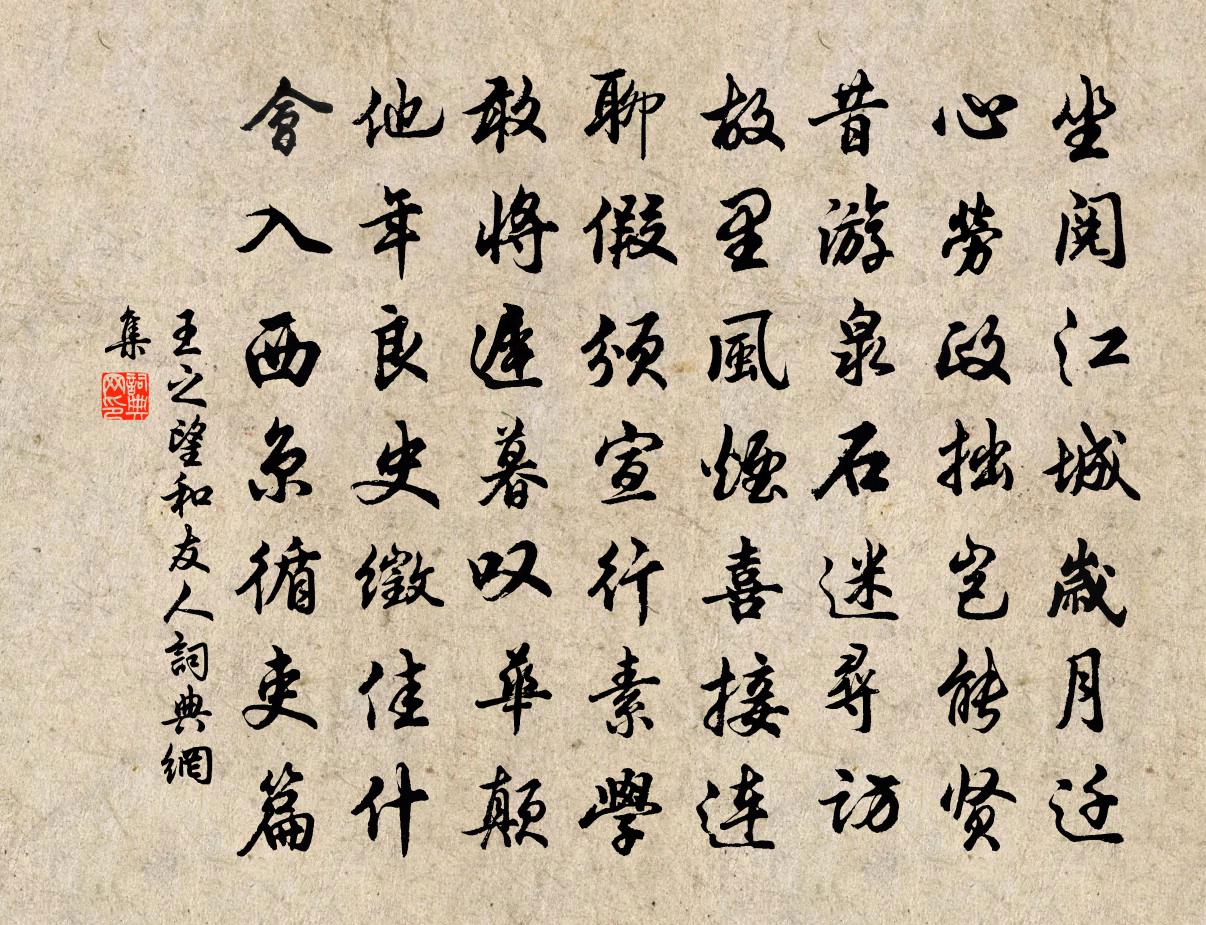 坐閱江城歲月迁
心勞政拙豈能贤
昔游泉石迷尋访
故里風煙喜接連
聊假頒宣行素學
敢將遲暮叹華顛
他年良史徵佳什
會入西京循吏篇
王之望和友人詞典網
集
詞典网印